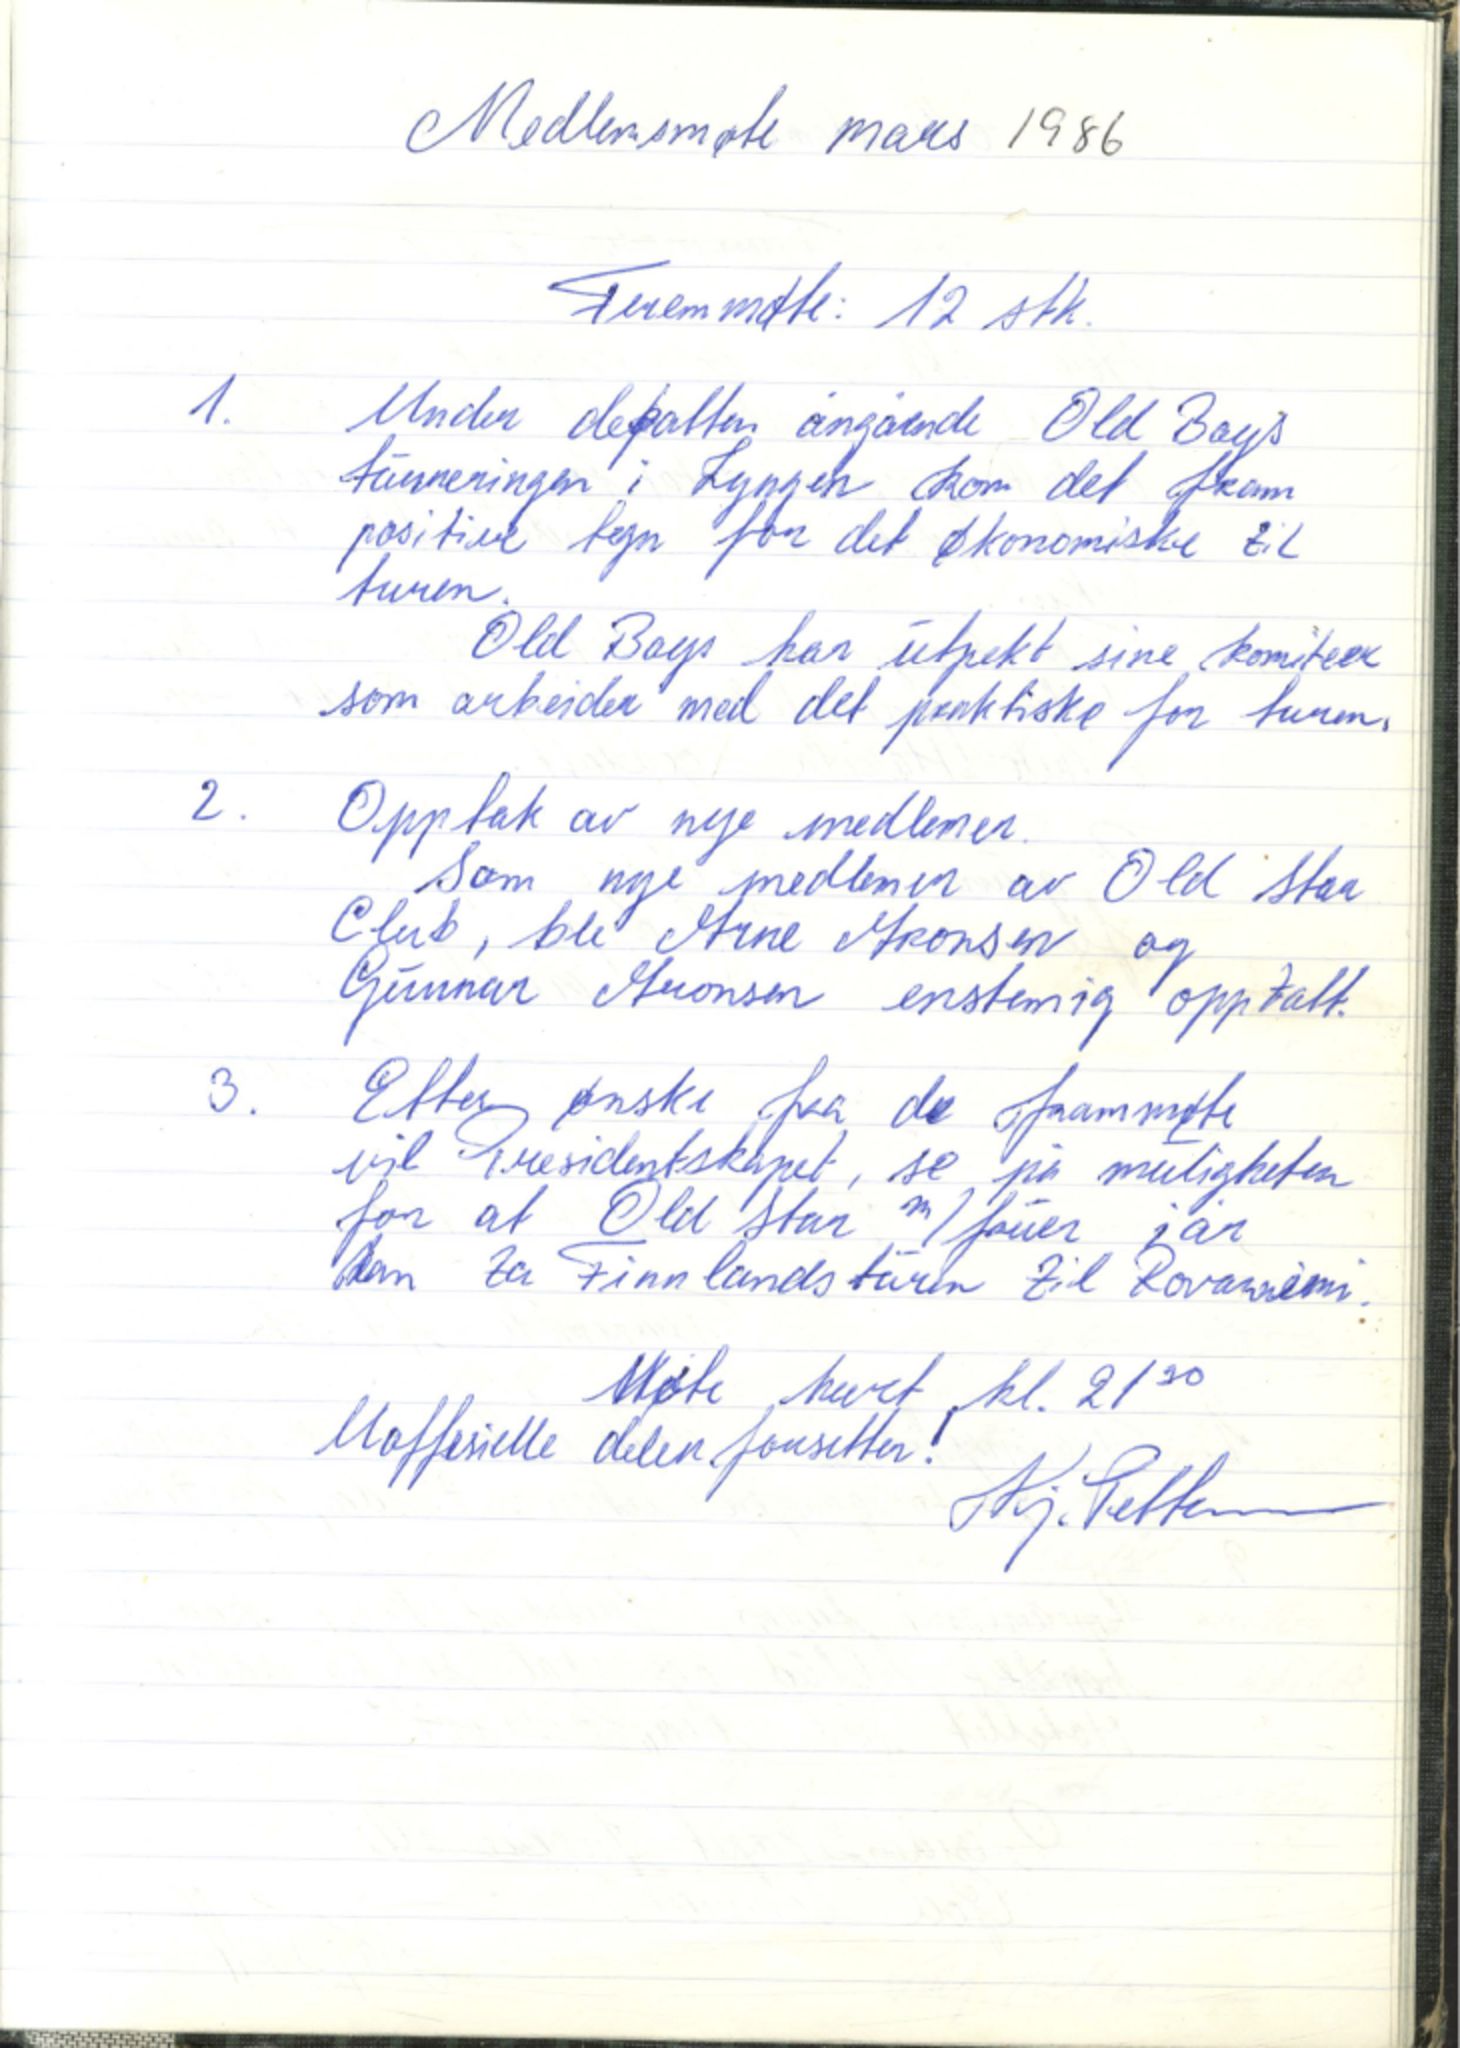 Medlemsmøte mars 1986
Fremmøte: 12 stk.
1. Under debatten angående Old Boys
turneringen i Lyngen kom det fram
positive tegn for det økonomiske til
turen.
Old Boys har utpekt sine komiteer
som arbeider med det praktiske for turen.
2. Opptak av nye medlemer.
Som nye medlemer av Old Star
Club, ble Arne Aronsen og
Gunnar Aronsen enstemig opptatt.
3. Etter ønske fra de frammøte
vil Presidentskapet, se på muligheten
for at Old Star m/fruer i år
kan ta Finnlandsturen til Rovaniemi.
Møte hevet kl. 21³⁰
Uoffesielle delen forsetter!
Kj. Petter